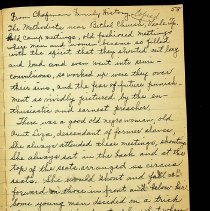 58
From Chapman Family History
The Methodists near Bethel Church
held camp meetings, old fashioned meetings
where men and women became so filled
with the spirit that they shouted out long
and loud and even went into un-
consciousness, so worked up were they over
their sins, and the fear of future punish-
ment so vividly pictured by the en-
thusiastic and earnest preacher.
There was a good old negro woman, old
Aunt Liza, descendant of former slaves
she always attended these meetings, shouting
She always sat in the back and at the
top of the seats arranged as circus
seats. She would shout and fall
forward on those in front and below her
Some young men decided on a trick